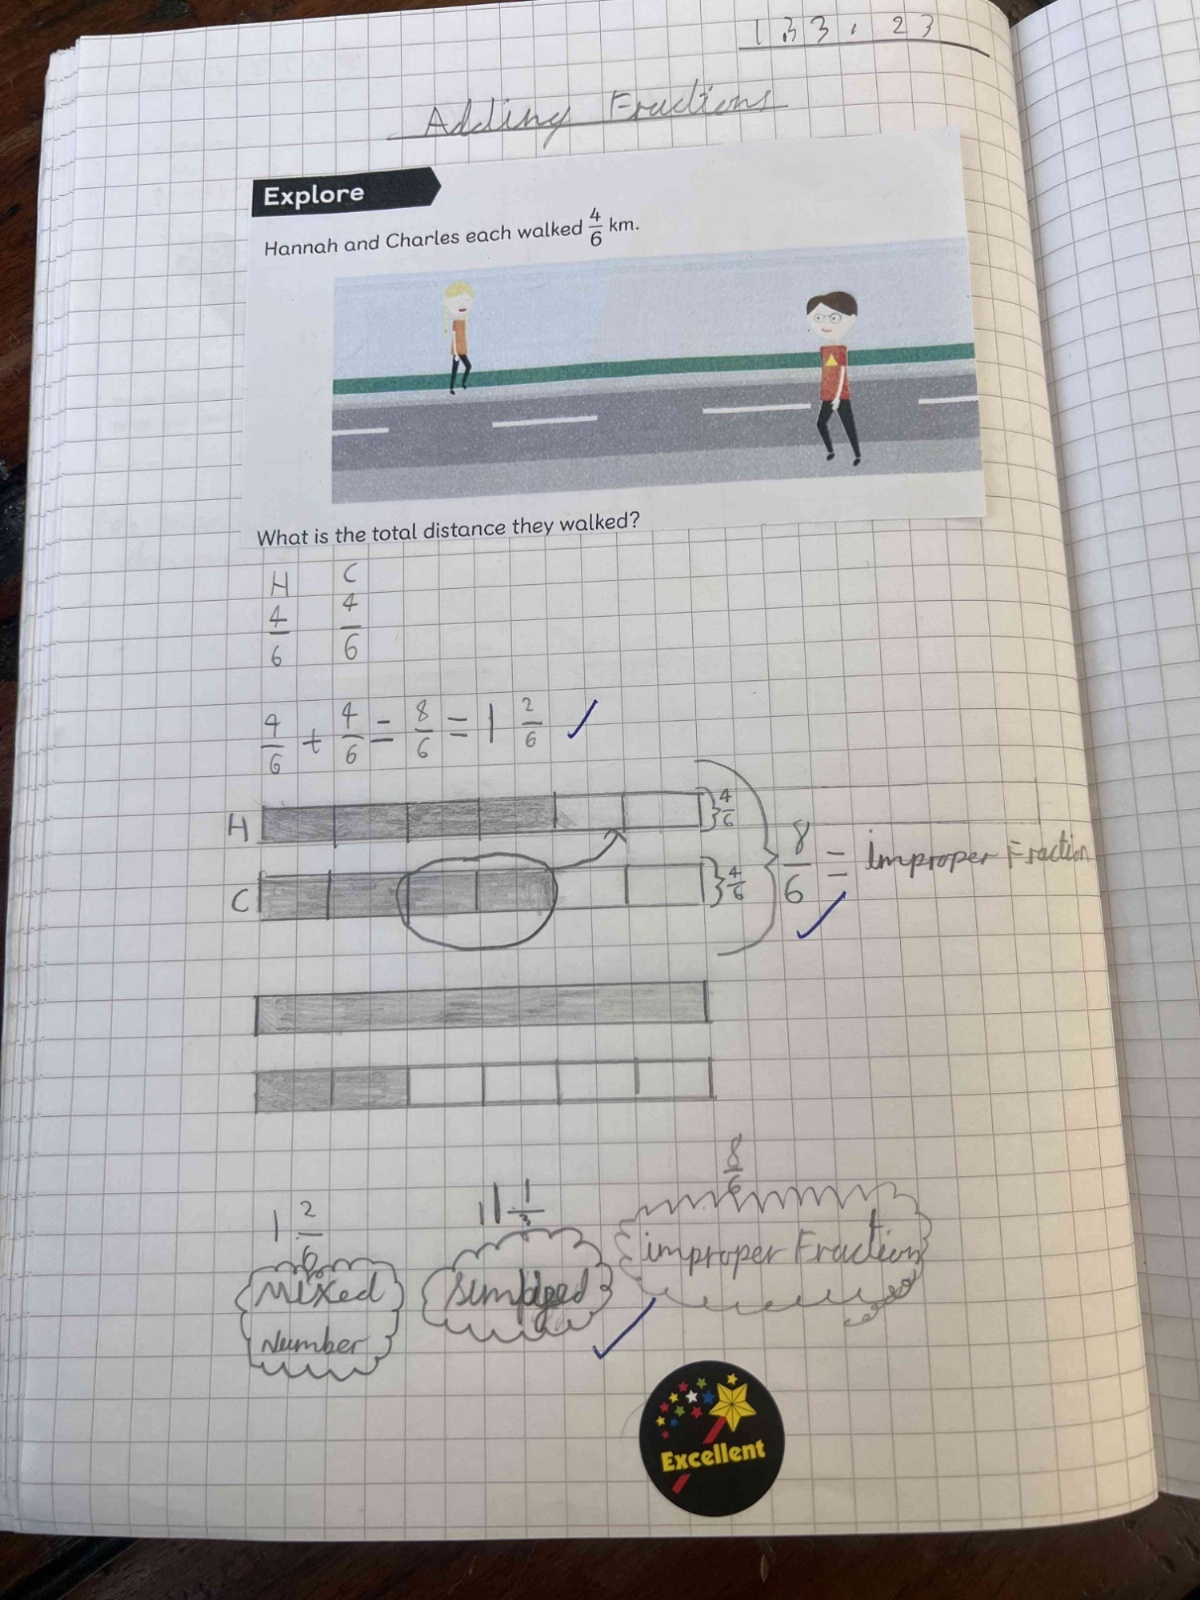 Adding Fractions
Explore
Hannah and Charles each walked 4/6 km.
What is the total distance they walked?
H C
4/6 4/6
4/6 + 4/6 = 8/6 = 1 2/6 ✓
H 4/6
C 4/6
8/6 = improper Fraction
8/6
1 2/6
1 1/3
mixed
Number
improper Fraction
Excellent